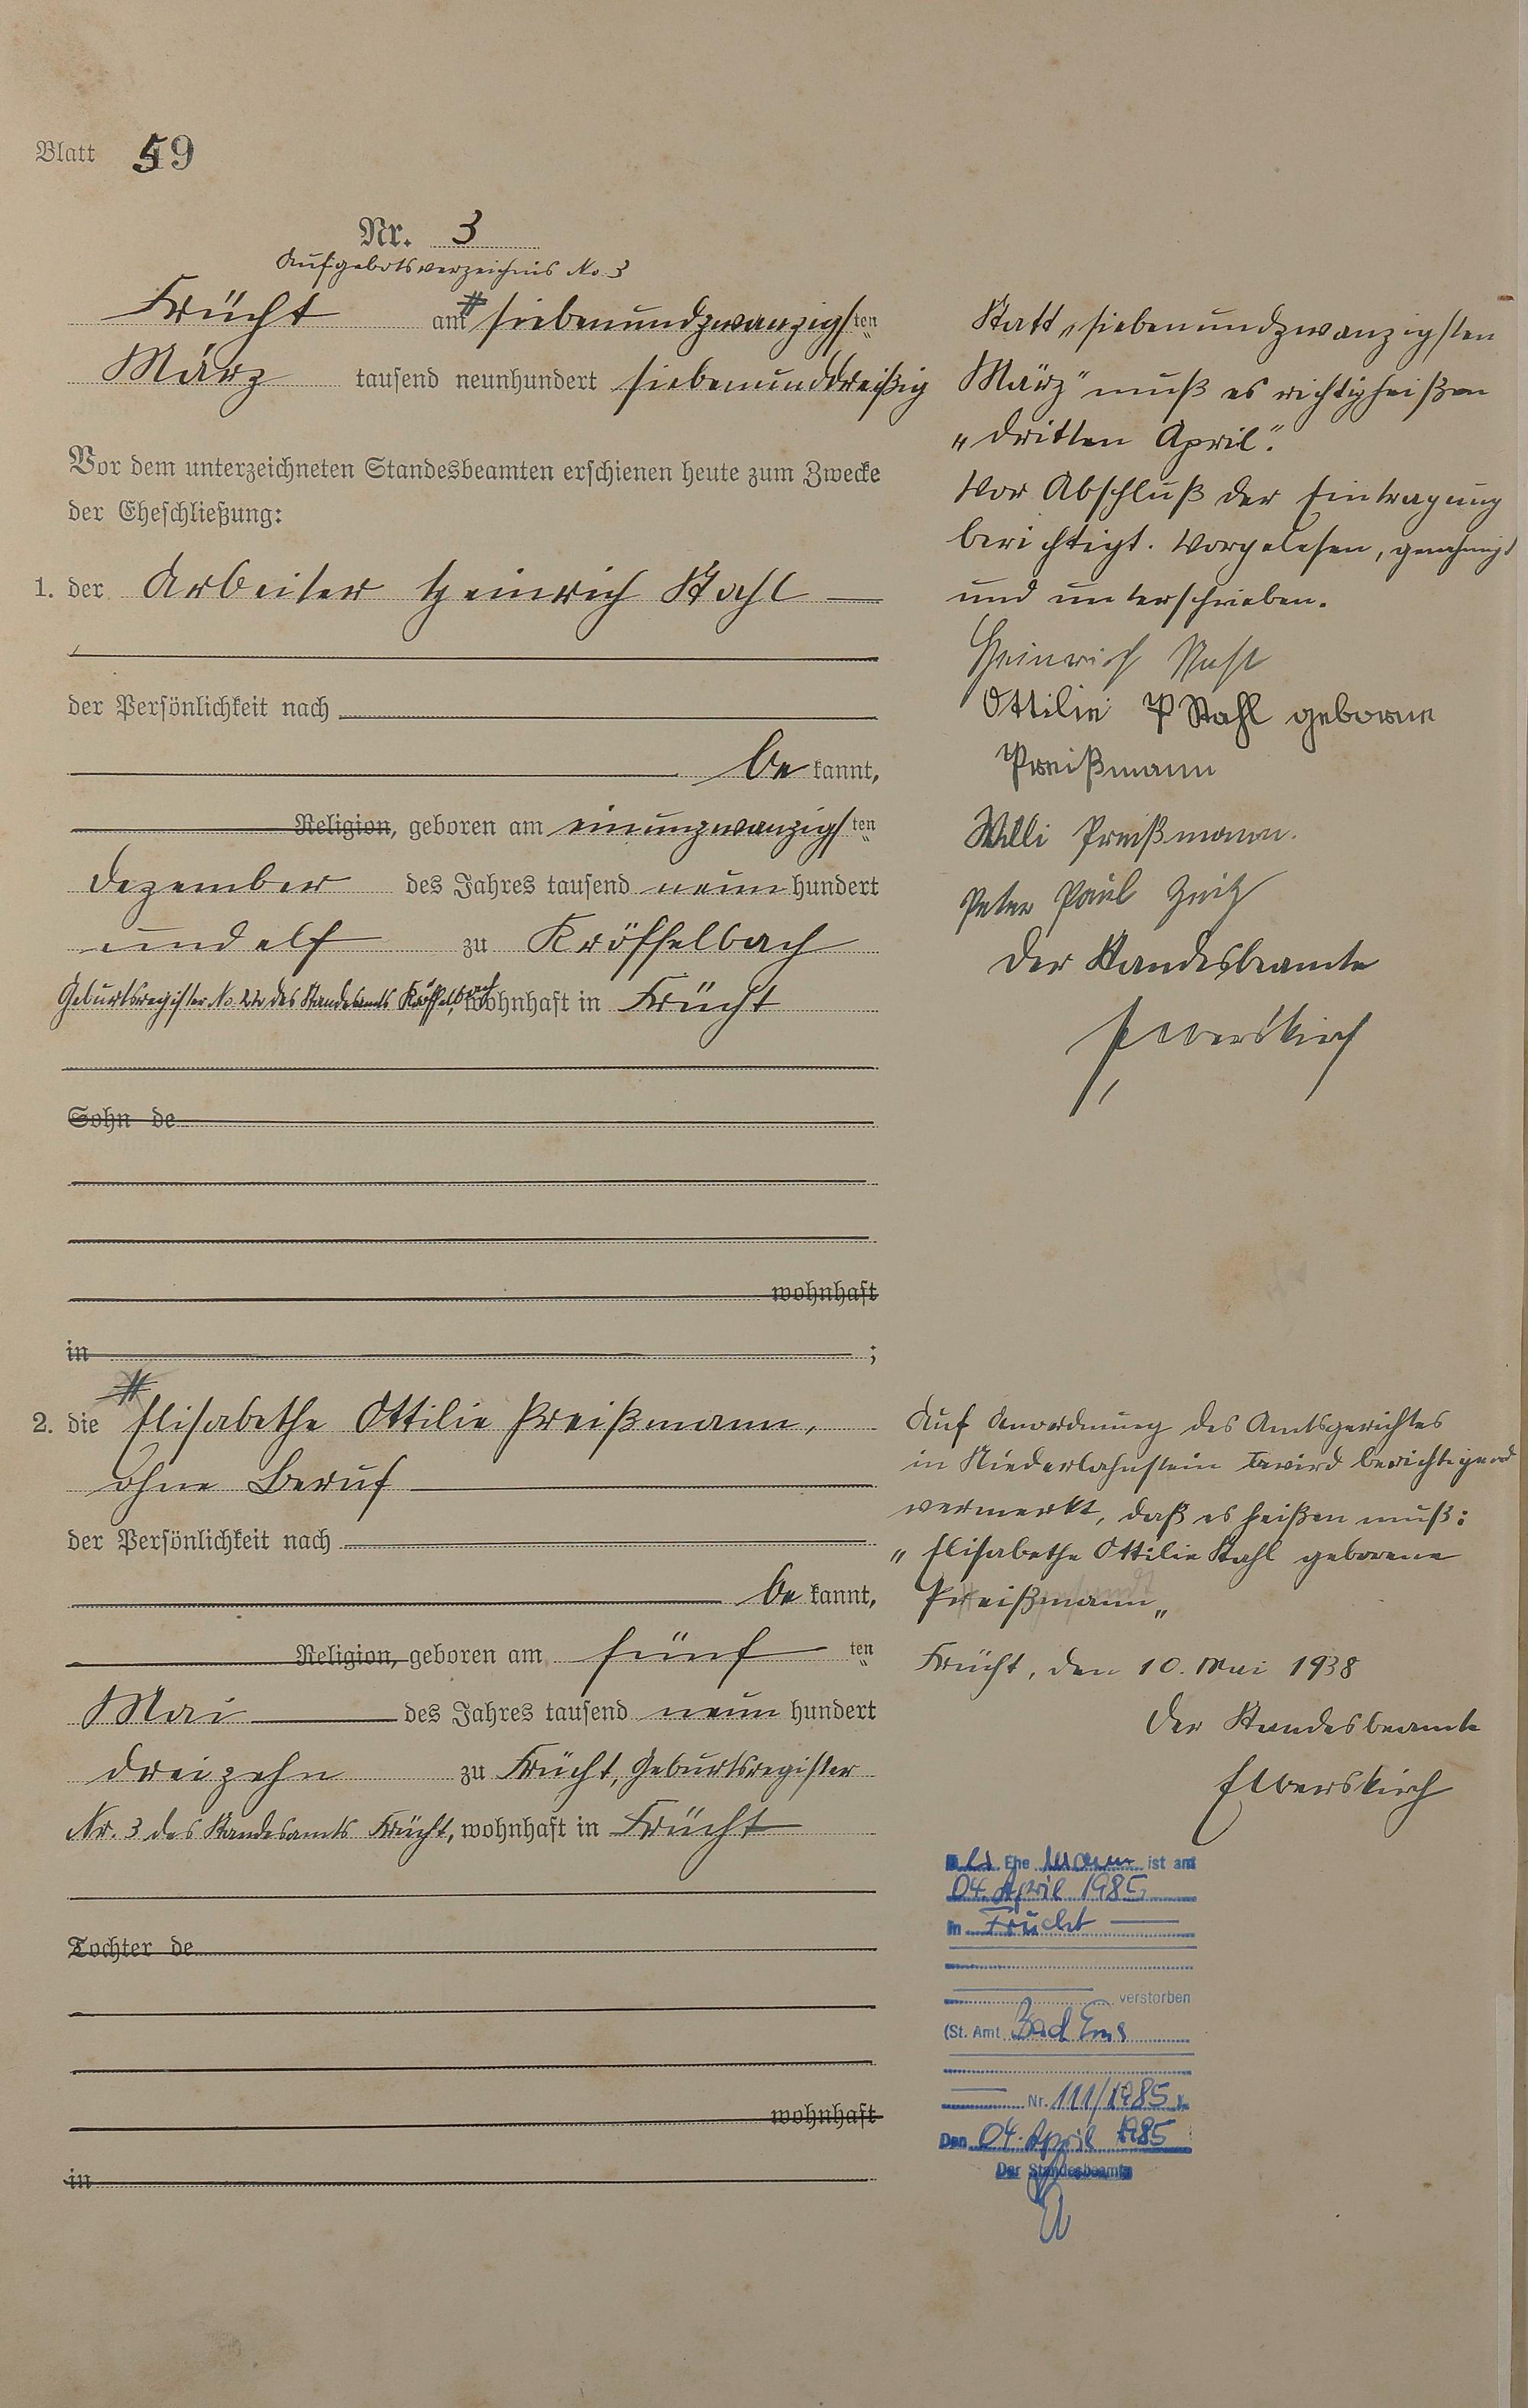 Blatt 59
Nr. 3
Aufgebotsverzeichnis No 3
Frücht am siebenundzwanzigsten
März tausend neunhundert siebenunddreißig
Vor dem unterzeichneten Standesbeamten erschienen heute zum Zwecke
der Eheschließung:
1. der Arbeiter Heinrich Stahl
der Persönlichkeit nach
be kannt,
Religion, geboren am einunzwanzigsten
Dezember des Jahres tausend neun hundert
und elf zu Kröffelbach
Geburtsregister No des Standesamts Kröffelbach, wohnhaft in Frücht
Sohn de
wohnhaft
in ;
2. die Elisabethe Ottilie Preißmann,
ohne Beruf
der Persönlichkeit nach
be kannt,
Religion, geboren am fünf ten
Mai des Jahres tausend neun hundert
dreizehn zu Frücht, Geburtsregister
Nr. 3 des Standesamts Frücht, wohnhaft in Frücht
Tochter de
wohnhaft
in
Statt „siebenundzwanzigsten
März" muß es richtig heißen
„dritten April".
Vor Abschluß der Eintragung
berichtigt. Vorgelesen, genehmigt
und unterschrieben.
Heinrich Stahl
Ottilie P Stahl geborene
Preißmann
Willi Preißmann.
Peter Paul
Der Standesbeamte
Elverskirch
Auf Anordnung des Amtsgerichtes
in Niederlahnstein wird berichtigend
vermerkt, daß es heißen muß:
„Elisabethe Ottilie Stahl geborene
Preißmann„
Frücht, den 10. Mai 1938
Der Standesbeamte
Elverskirch
Der Ehe mann ist am
04. April 1985
in Frücht
verstorben
(St. Amt Bad Ems
Nr. 111/1985).
Den 04. April 1985
Der Standesbeamte